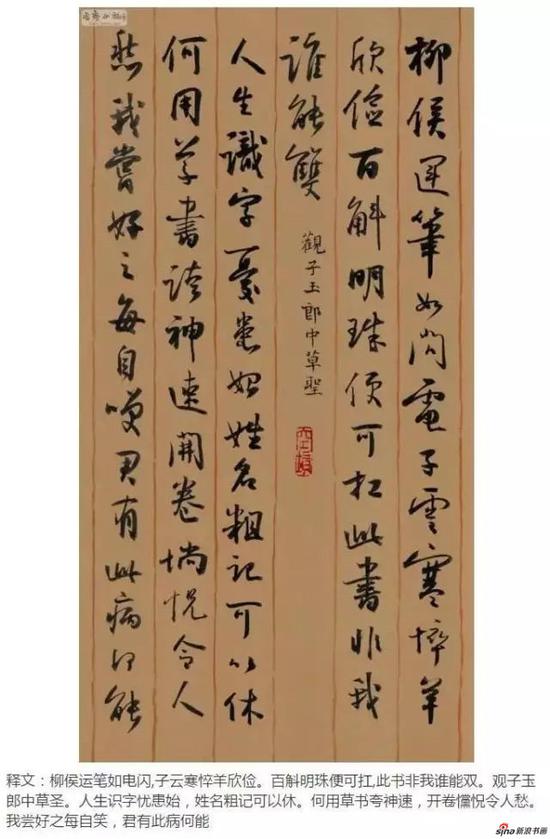 柳侯運筆如閃電子雲寒悴羊
欣儉百斛明珠便可扛此書非我
誰能雙
觀子玉郎中草聖
人生識字憂患始姓名粗記可以休
何用草書誇神速開卷惝怳令人
愁我嘗好之每自笑君有此病何能
释文：柳侯运笔如电闪,子云寒悴羊欣俭。百斛明珠便可扛,此书非我谁能双。观子玉
郎中草圣。人生识字忧患始，姓名粗记可以休。何用草书夸神速，开卷戃怳令人愁。
我尝好之每自笑，君有此病何能
sina新浪书画